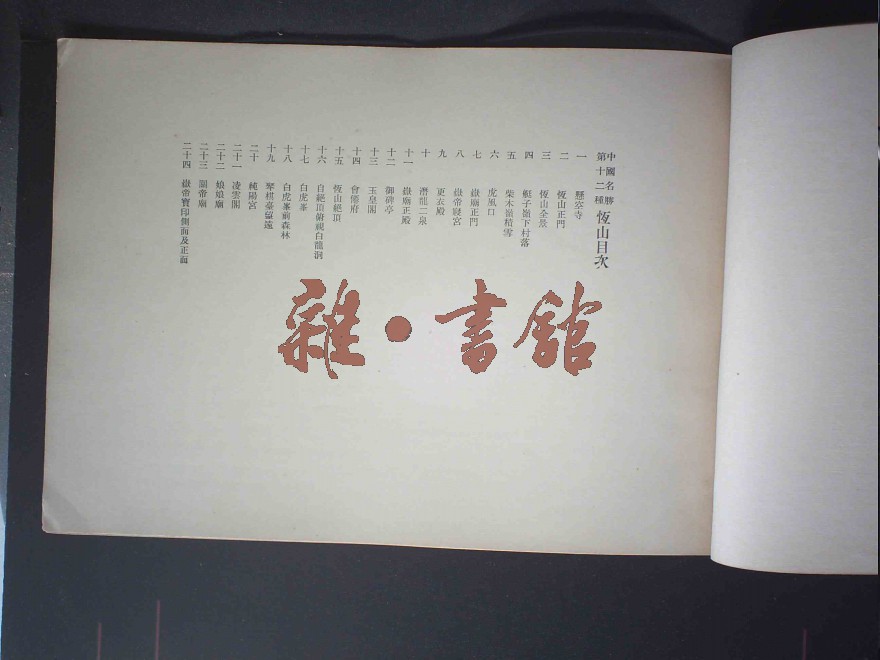 中國名勝
第十二種 恆山目次
一 懸空寺
二 恆山正門
三 恆山全景
四 艇子嶺下村落
五 柴木嶺積雪
六 虎風口
七 嶽廟正門
八 嶽帝寢宮
九 更衣殿
十 潛龍二泉
十一 嶽廟正殿
十二 御碑亭
十三 玉皇閣
十四 會僊府
十五 恆山絕頂
十六 自絕頂俯視白龍洞
十七 白虎峯
十八 白虎峯前森林
十九 琴棋臺望遠
二十 純陽宮
二十一 凌雲閣
二十二 娘娘廟
二十三 關帝廟
二十四 嶽帝寶印側面及正面
雜·書館